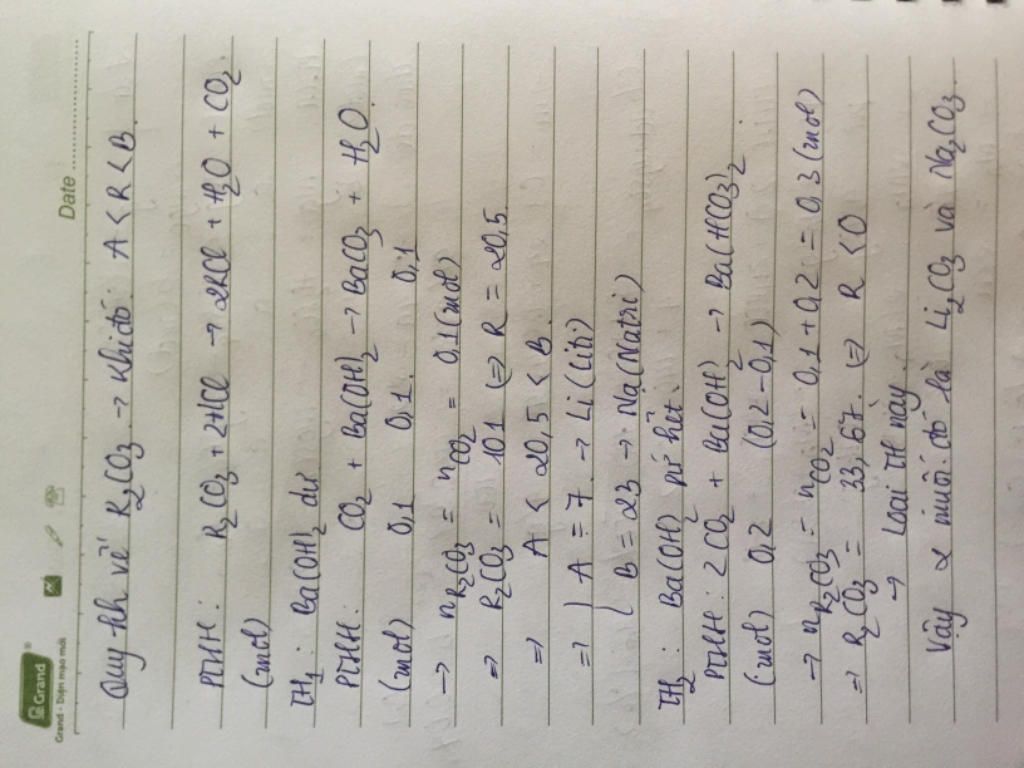 Grand
Grand - Diện mạo mới
Date
Quy hh về R2CO3 → khi đó: A < R < B.
PTHH: R2CO3 + 2HCl → 2RCl + H2O + CO2.
(mol)
TH1: Ba(OH)2 dư
PTHH: CO2 + Ba(OH)2 → BaCO3 + H2O.
(mol) 0,1 0,1. 0,1
→ nR2CO3 = nCO2 = 0,1 (mol)
=> R2CO3 = 101 (=) R = 20,5.
=> A < 20,5 < B.
=> { A = 7. → Li (Liti)
B = 23 → Na (Natri)
TH2: Ba(OH)2 pứ hết.
PTHH: 2CO2 + Ba(OH)2 → Ba(HCO3)2.
(mol) 0,2 (0,2-0,1)
→ nR2CO3 = nCO2 = 0,1 + 0,2 = 0,3 (mol)
=> R2CO3 = 33,67. (=) R < 0
→ Loại TH này.
Vậy 2 muối đó là Li2CO3 và Na2CO3.